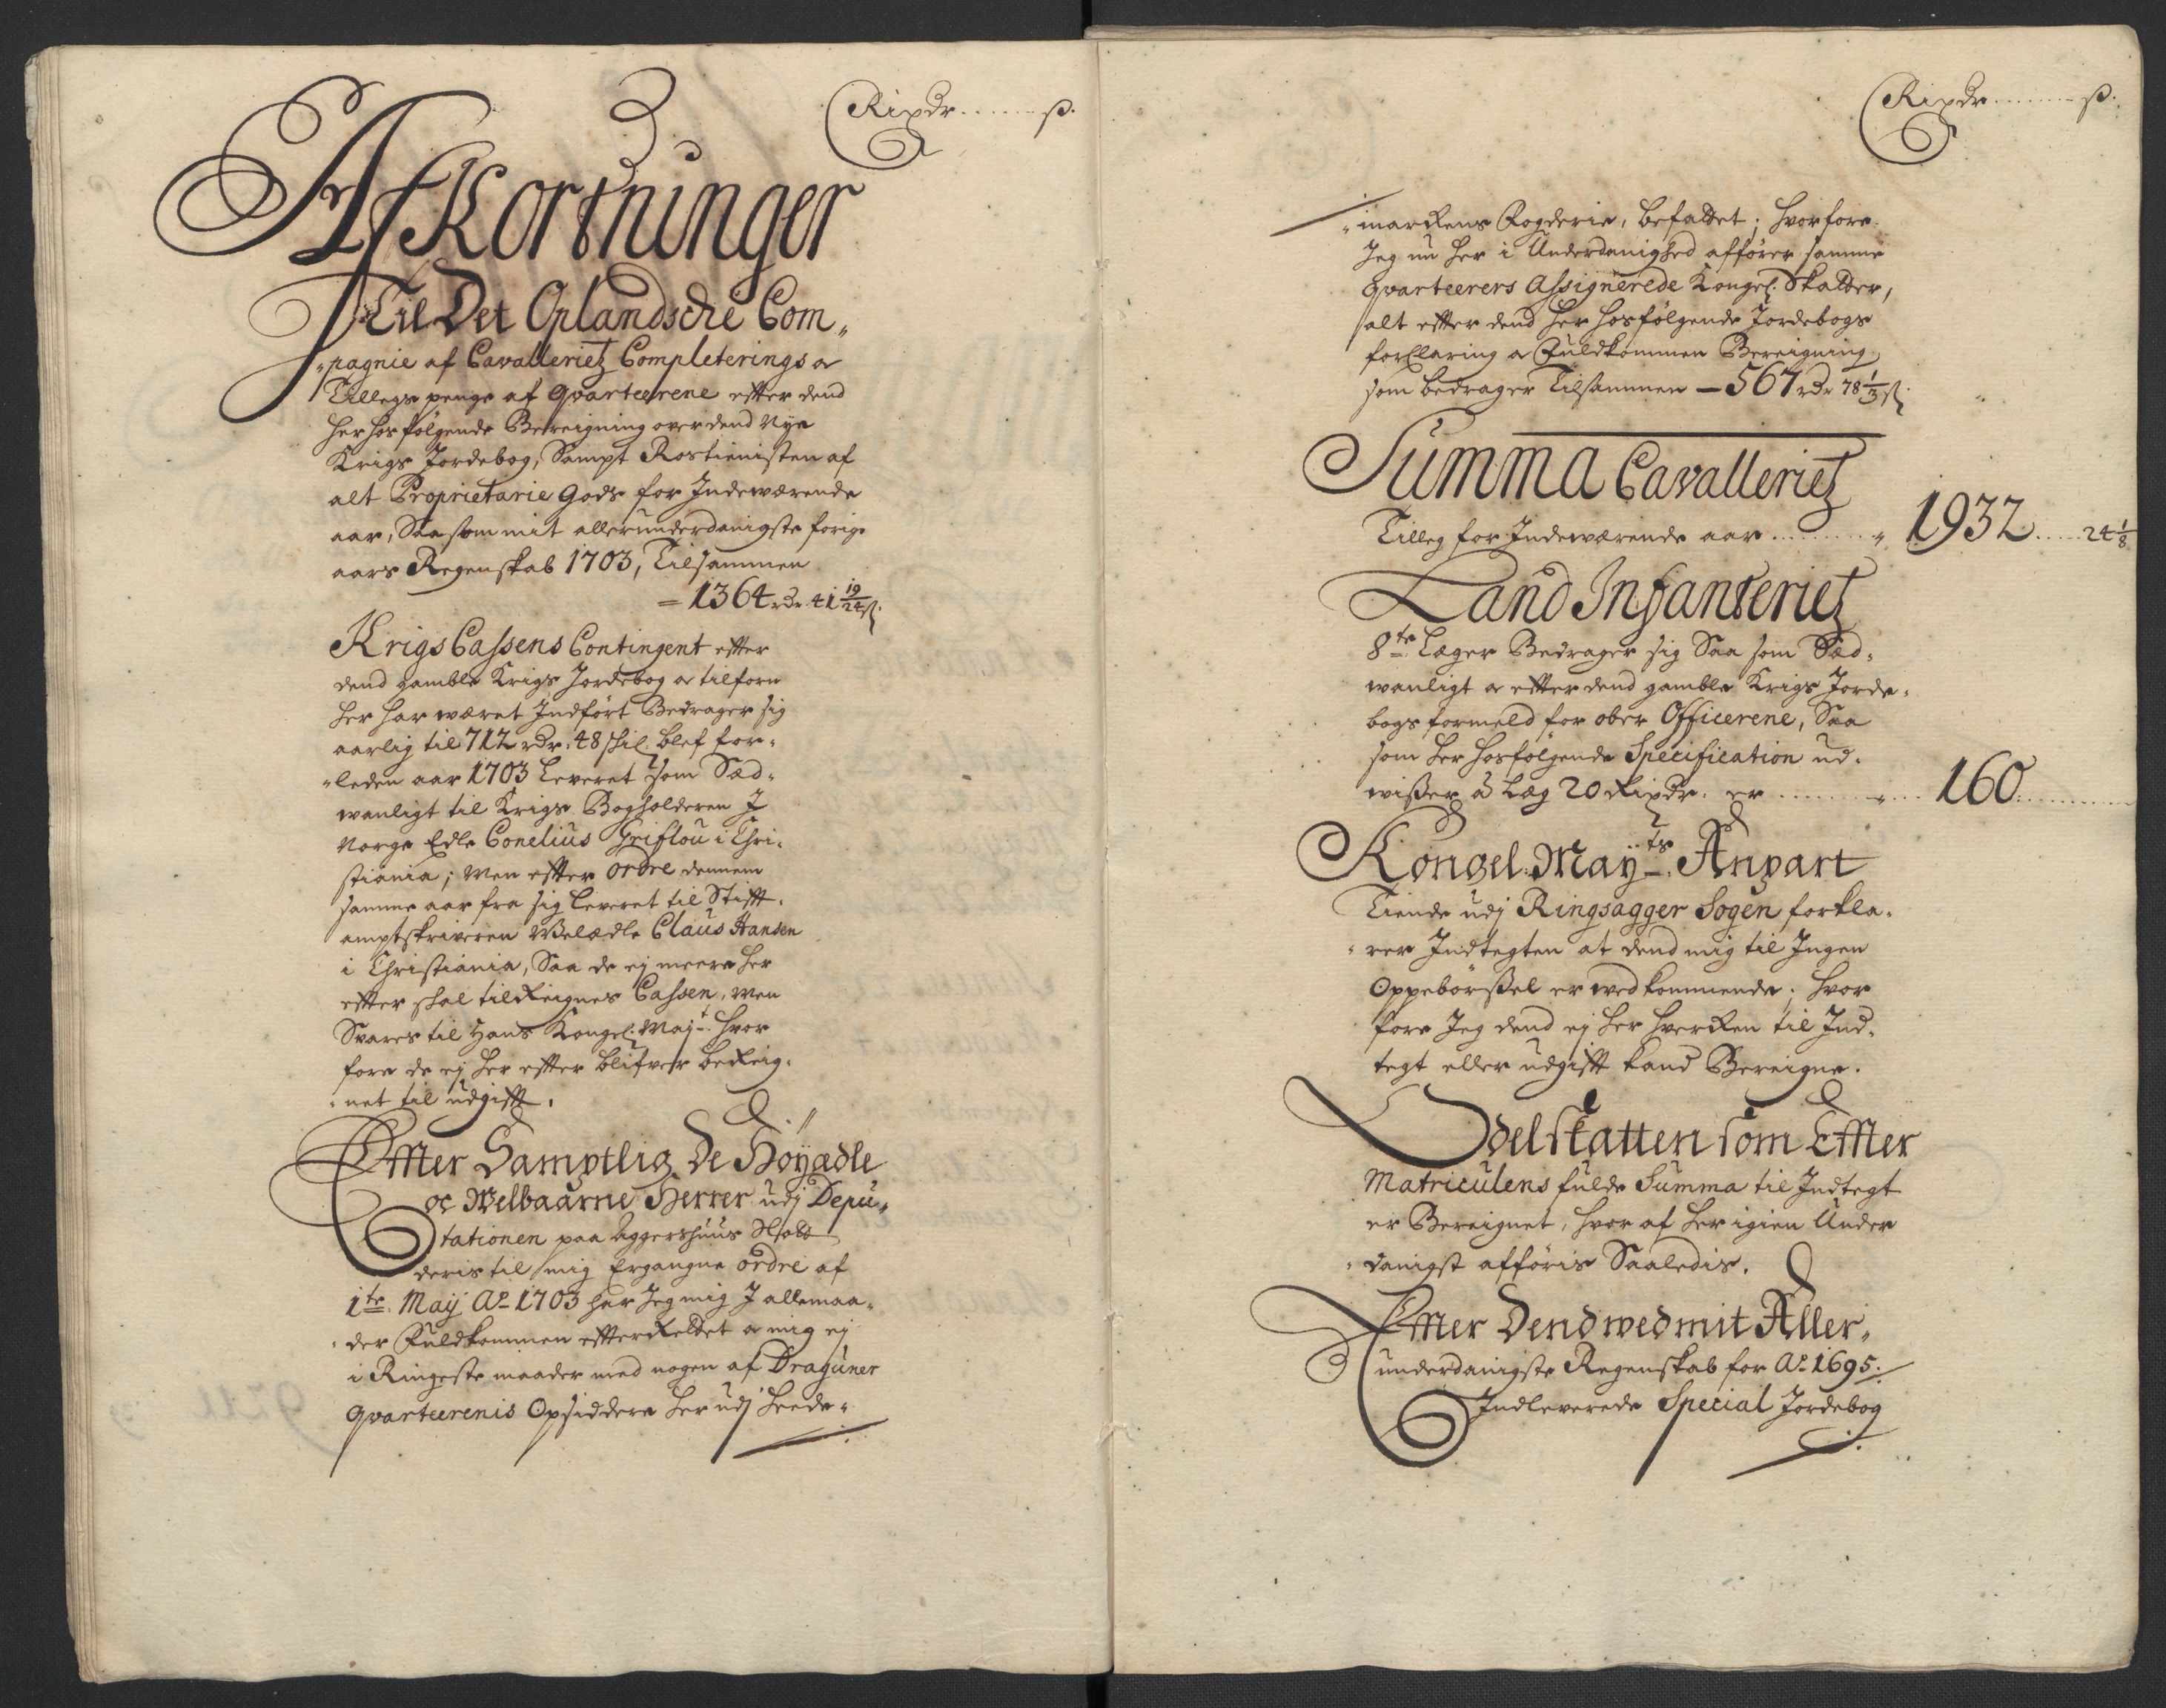 Rixdr ...... ß.
Afkortninger
Til Det Oplandsche Com„
„pagnie af Cavallerietz Completerings oc
Tillegs penge af Qvarteerene efter dend
her hos følgende Bereigning over dend Nye
Krigs Jordebog, Sampt Rostienisten af
alt Proprietarie Gods for Indeværende
aar, Saa som mit allerunderdanigste forige
aars Regenskab 1703, Tilsammen
= 1364 rdr. 41 19/24 ß.
Krigs Cassens Contingent efter
dend gamble Krigs Jordebog oc tilforn
her har været Indført Bedrager sig
aarlig til 712 rdr. 48 skil. blef for„
„leden aar 1703 leveret som Sæd„
vanligt til Krigs Bogholderen I
Norge Edle Conelius Griflou i Chri„
stiania; Men efter ordre dennem
samme aar fra sig leveret til Stifft„
amptskriveren Welædle Claus Hansen
i Christiania, Saa de ej meere her
efter skal tilReignes Cassen, Men
Svares til Hans Kongel. Majt. hvor
fore de ej her efter blifver beReig„
„net til udgifft.
Efter Samptlig De Høyædle
oc Welbaarne Herrer udj Depu„
tationen paa Aggershuus
deris til mig Ergangne ordre af
1te. Maij Ao 1703 har Jeg mig I allemaa„
„der Fuldkommen efterRettet oc mig ej
i Ringeste maader med nogen af Draguner
Qvarteerenis Opsiddere her udj Heede„
Rixdr ...... ß.
„marckens Fogderie, befattet; hvorfore
Jeg nu her i Underdanighed afførrer samme
Qvarteerers Assignerede Kongel. Skatter,
alt efter dend her hosfølgende Jordebogs
forklaring oc Fuldkommen Bereigning,
som bedrager Tilsammen — 567 rdr 78 1/3 ß.
Summa Cavalleriet
Tilleg for Indeværende aar ........ „ 1932 ..... 24 1/8
Land Infanteriet
8te. Læger Bedrager sig Saa som Sæd„
vanligt oc efter dend gamble Krigs Jorde„
bogs formeld for ober Officerene, Saa
som her hosfølgende Specification ud„
wißer â Læg 20 Rixdr. er ........ „ ... 160 ........
Kongel: Mayts. Anpart
Tiende udj Ringsagger Sogen forkla„
„rer Indtegten at dend mig til Ingen
Oppebørßel er ved kommende; hvor
fore Jeg dend ej her hverken til Ind„
tegt eller udgifft kand Bereigne.
Odelskatten som Effter
Matriculens fulde Summa til Indtegt
er Bereignet, hvor af her igien Under
„danigst afføris Saaledis.
Effter Dend wed mit Aller„
underdanigste Regenskab for Ao. 1695.
Indleverede Special Jordebog